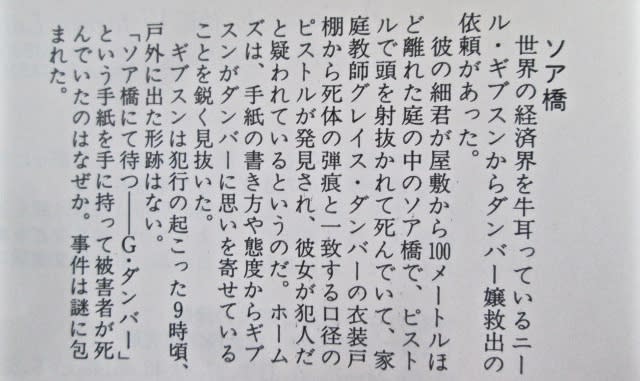 ソア橋
世界の経済界を牛耳っているニー
ル・ギブスンからダンバー嬢救出の
依頼があった。
彼の細君が屋敷から100メートルほ
ど離れた庭の中のソア橋で、ピスト
ルで頭を射抜かれて死んでいて、家
庭教師グレイス・ダンバーの衣装戸
棚から死体の弾痕と一致する口径の
ピストルが発見され、彼女が犯人だ
と疑われているというのだ。ホーム
ズは、手紙の書き方や態度からギブ
スンがダンバーに思いを寄せている
ことを鋭く見抜いた。
ギブスンは犯行の起こった9時頃、
戸外に出た形跡はない。
「ソア橋にて待つ――G・ダンバー」
という手紙を手に持って被害者が死
んでいたのはなぜか。事件は謎に包
まれた。